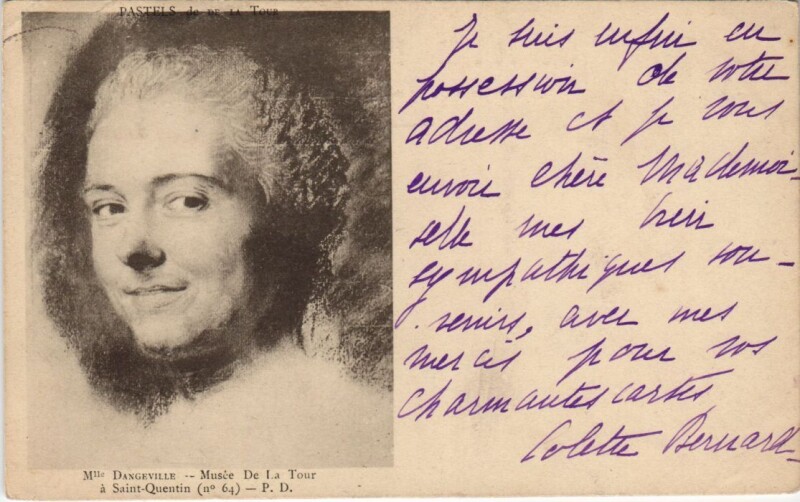 PASTELS de DE LA TOUR
Je suis enfin en
possession de votre
adresse et je vous
envoie chère Mademoi-
selle mes bien
sympathiques sou-
venirs, avec mes
mercis pour vos
charmantes cartes
Colette Bernard
Mlle DANGEVILLE -- Musée De La Tour
à Saint-Quentin (nº 64) — P. D.